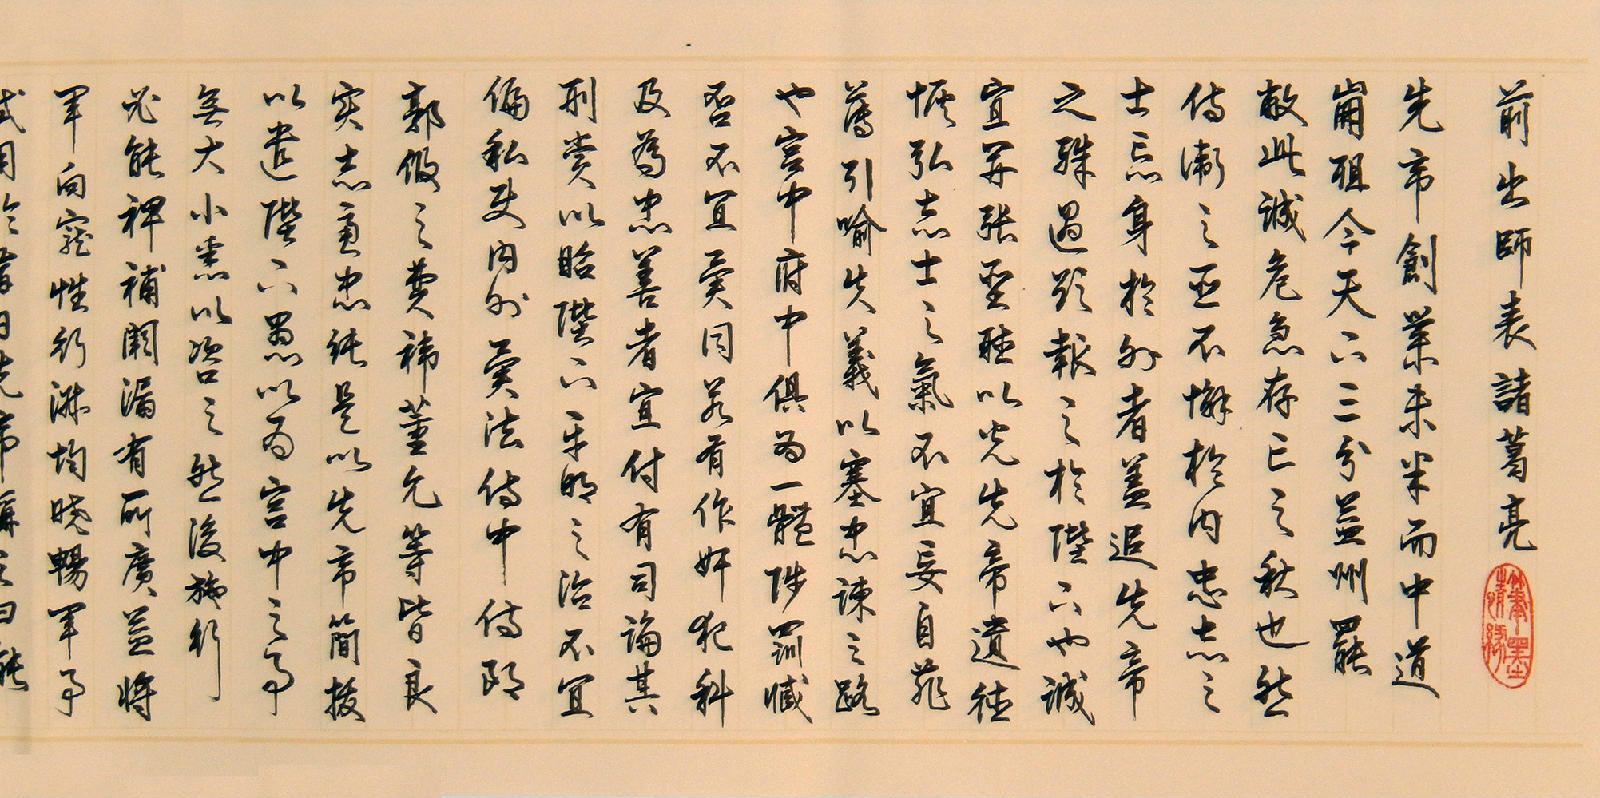 前出師表 諸葛亮
先帝創業未半而中道
崩殂今天下三分益州罷
敝此誠危急存亡之秋也然
侍衛之臣不懈於內忠志之
士忘身於外者蓋追先帝
之殊遇欲報之於陛下也誠
宜開張聖聽以光先帝遺德
恢弘志士之氣不宜妄自菲
薄引喻失義以塞忠諫之路
也宮中府中俱為一體陟罰臧
否不宜異同若有作奸犯科
及為忠善者宜付有司論其
刑賞以昭陛下平明之治不宜
偏私使內外異法侍中侍郎
郭攸之費禕董允等皆良
实志慮忠純是以先帝簡拔
以遺陛下愚以为宮中之事
無大小悉以咨之然後施行
必能裨補闕漏有所廣益將
軍向寵性行淑均曉暢軍事
試用於昔日先帝稱之曰能